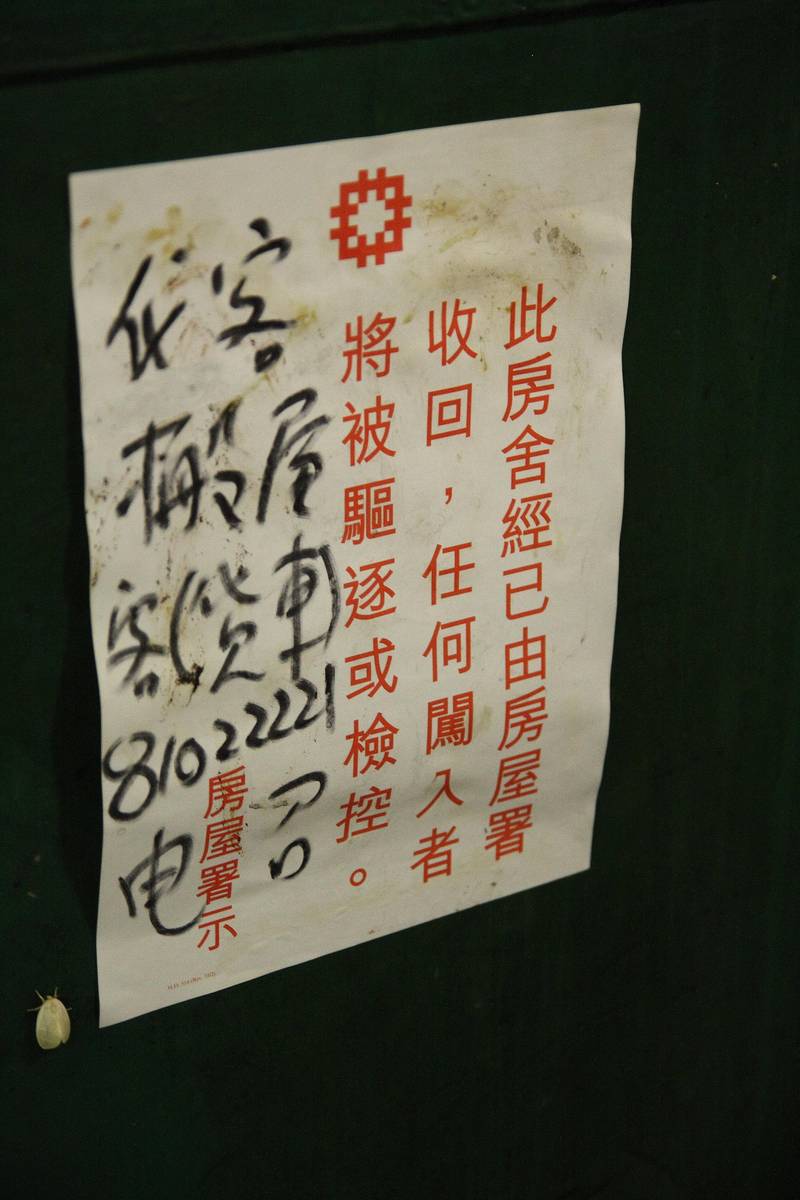 此房舍經已由房屋署
收回，任何闖入者
將被驅逐或檢控。
房屋署示
代客
搬屋
客(貨車)
81022221
电